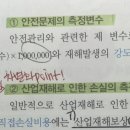 ① 안전문제의 측정변수
안전관리와 관련한 제 변수
수)×1,000,000)와 재해발생의 강도
point!
② 산업재해로 인한 손실의 측
일반적으로 산업재해로 인한
접손실비용에는 산업재해보상